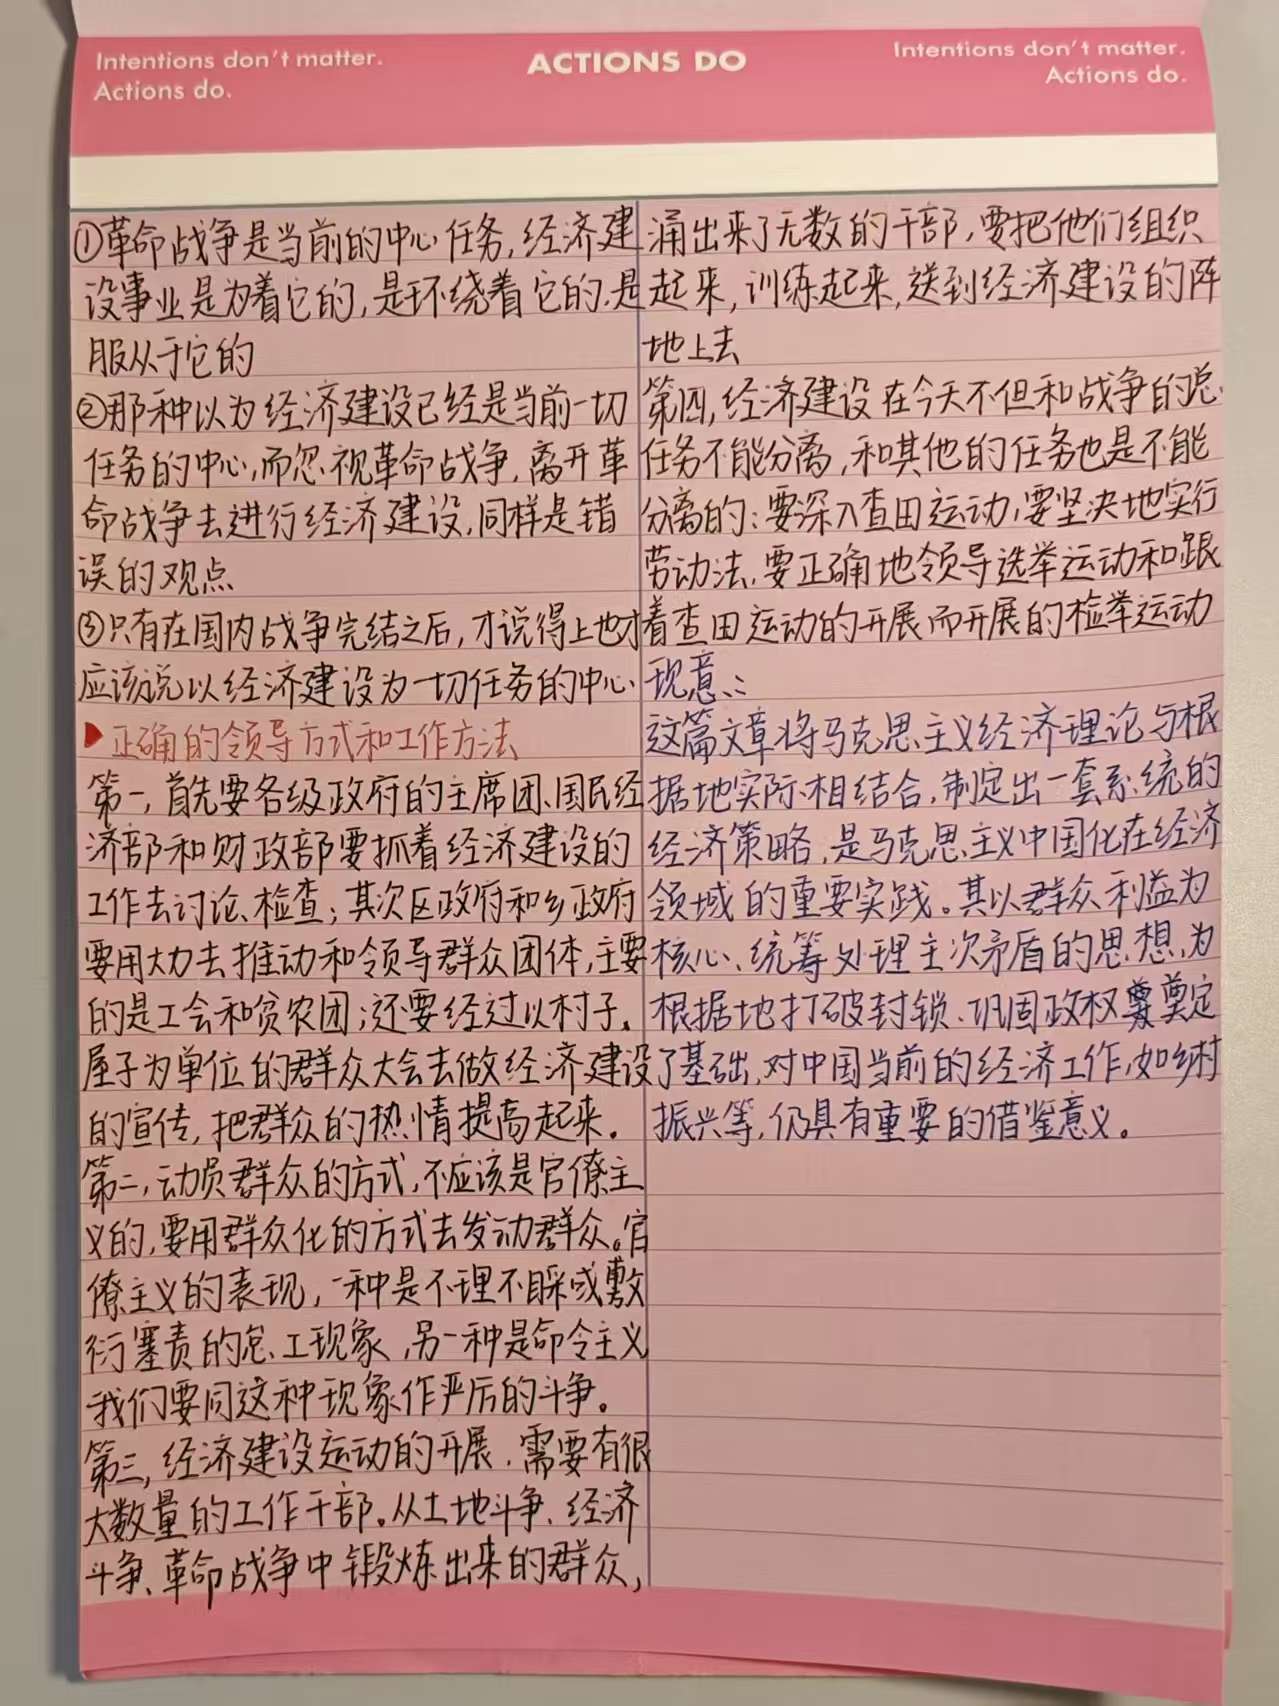 Intentions don't matter.
Actions do.
ACTIONS DO
Intentions don't matter.
Actions do.
①革命战争是当前的中心任务,经济建
设事业是为着它的,是环绕着它的,是
服从于它的
②那种以为经济建设已经是当前一切
任务的中心,而忽视革命战争,离开革
命战争去进行经济建设,同样是错
误的观点
③只有在国内战争完结之后,才说得上也才
应该说以经济建设为一切任务的中心
正确的领导方式和工作方法
第一,首先要各级政府的主席团、国民经
济部和财政部要抓着经济建设的
工作去讨论、检查;其次区政府和乡政府
要用大力去推动和领导群众团体,主要
的是工会和贫农团;还要经过以村子、
屋子为单位的群众大会去做经济建设
的宣传,把群众的热情提高起来。
第二,动员群众的方式,不应该是官僚主
义的,要用群众化的方式去发动群众。官
僚主义的表现,一种是不理不睬或敷
衍塞责的怠工现象,另一种是命令主义
我们要同这种现象作严厉的斗争。
第三,经济建设运动的开展,需要有很
大数量的工作干部。从土地斗争、经济
斗争、革命战争中锻炼出来的群众,
涌出来了无数的干部,要把他们组织
起来,训练起来,送到经济建设的阵
地上去
第四,经济建设在今天不但和战争的总
任务不能分离,和其他的任务也是不能
分离的:要深入查田运动,要坚决地实行
劳动法,要正确地领导选举运动和跟
着查田运动的开展而开展的检举运动
现意::
这篇文章将马克思主义经济理论与根
据地实际相结合,制定出一套系统的
经济策略,是马克思主义中国化在经济
领域的重要实践。其以群众利益为
核心、统筹处理主次矛盾的思想,为
根据地打破封锁、巩固政权奠定
了基础,对中国当前的经济工作,如乡村
振兴等,仍具有重要的借鉴意义。